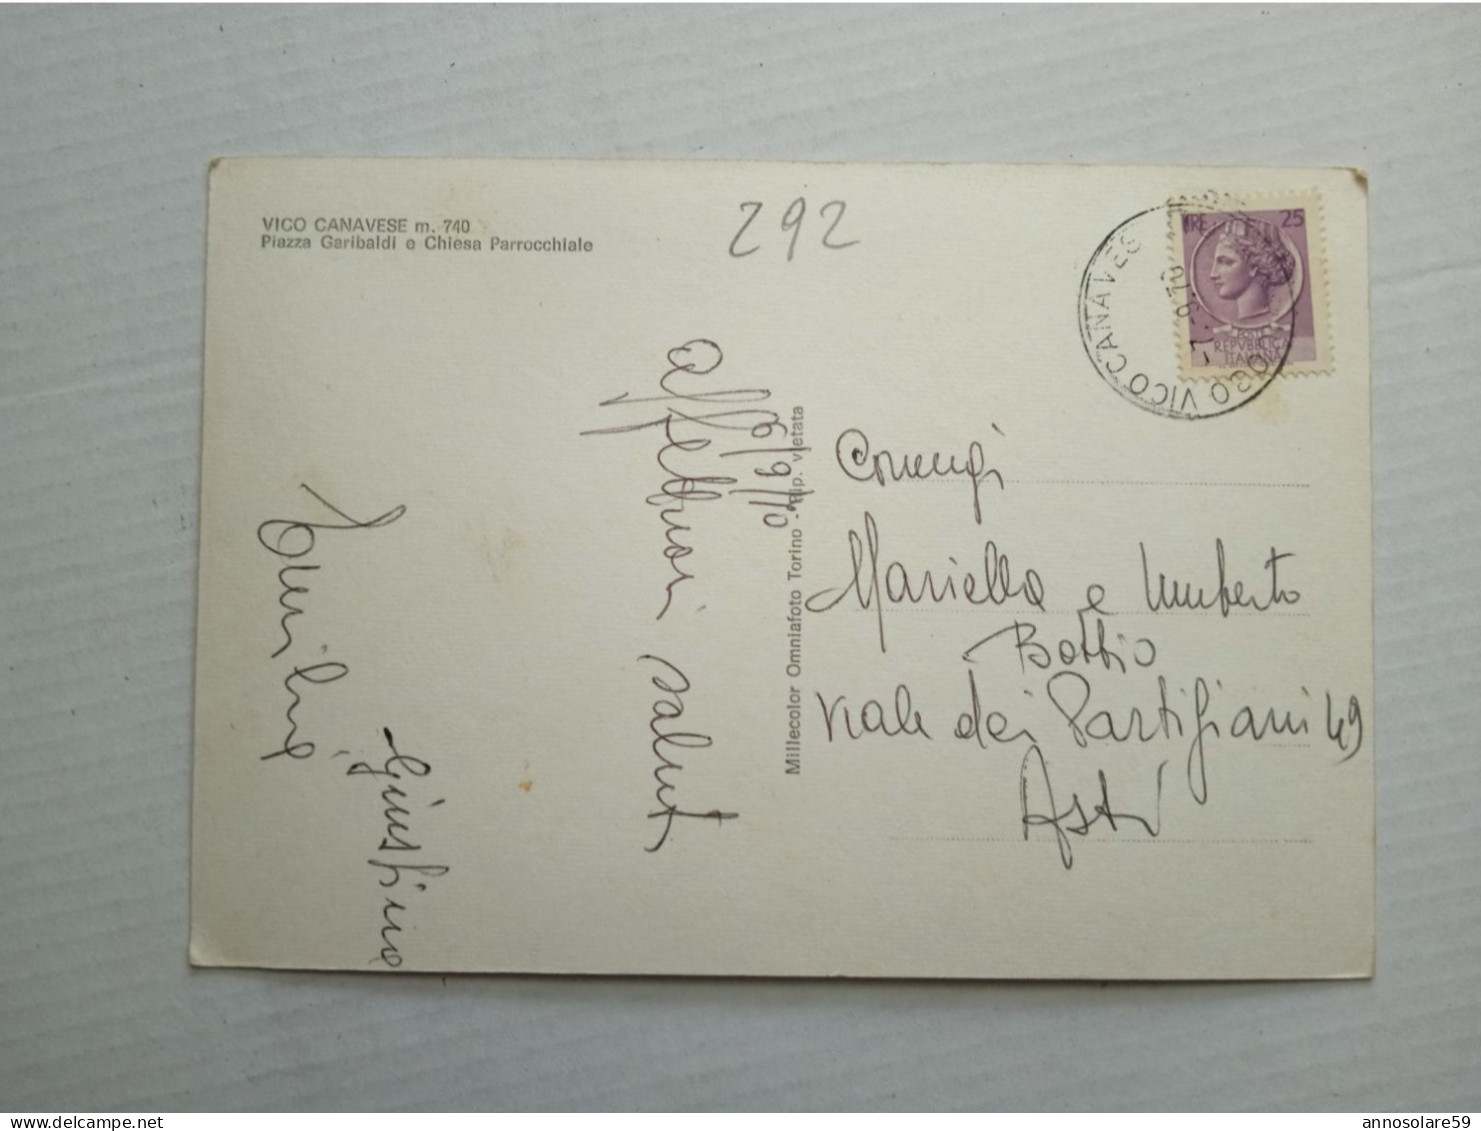 VICO CANAVESE m. 740
Piazza Garibaldi e Chiesa Parrocchiale
292
6/9/70
affettuosi saluti
Giustina
Millecolor Omniafoto Torino - Rip. vietata
LIRE 25
POSTE
REPVBBLICA
ITALIANA
VICO CANAVESE
-7.-9.70
Coniugi
Mariella e Umberto
Bottio
Viale dei Partigiani 49
Asti
delcampe.net
annosolare59